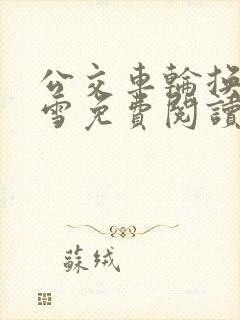 公交車輪換
雪免費閱讀
蘇絨